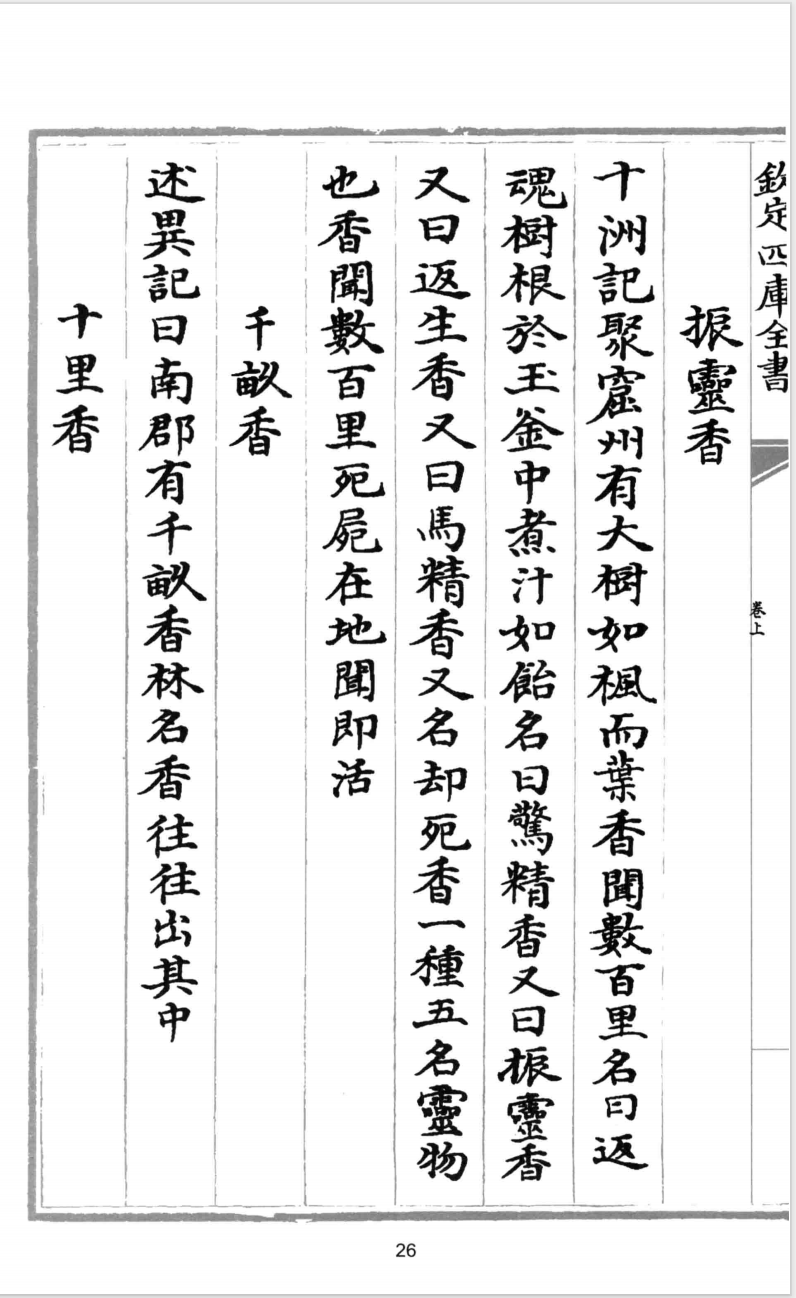 欽定四庫全書
卷上
振靈香
十洲記聚窟州有大樹如楓而葉香聞數百里名曰返
魂樹根於玉釜中煮汁如飴名曰驚精香又曰振靈香
又曰返生香又曰馬精香又名却死香一種五名靈物
也香聞數百里死屍在地聞即活
千畝香
述異記曰南郡有千畝香林名香往往出其中
十里香
26